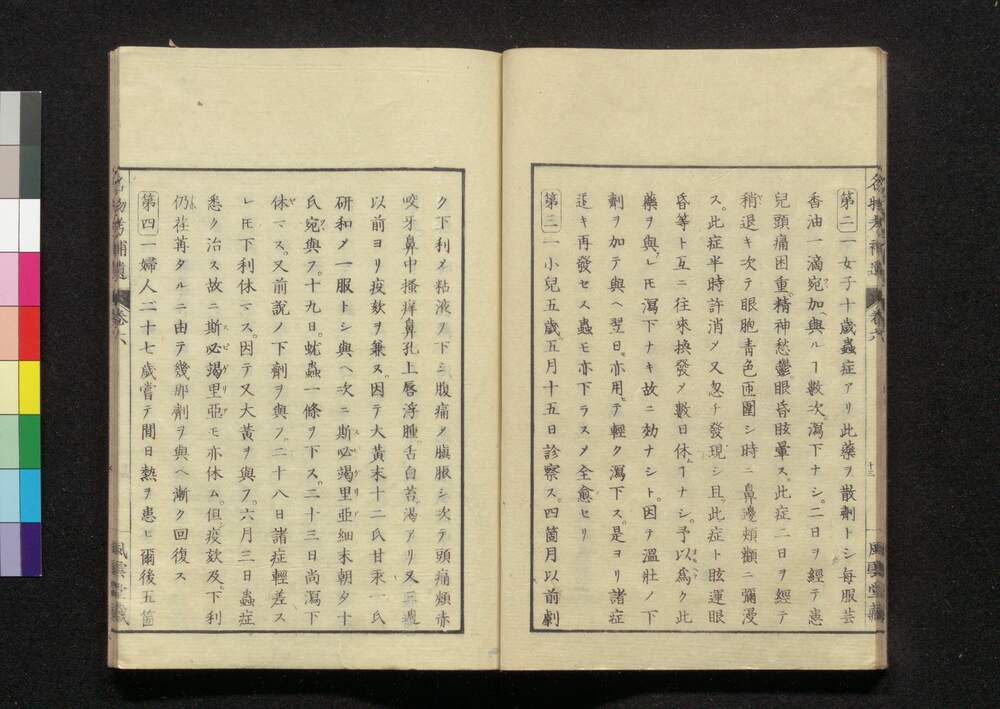 第二一女子十歳蟲症アリ此藥ヲ散劑トシ毎服芸
香油一滴宛加ヘ與ルヿ數次瀉下ナシ。二日ヲ經テ患
兒頭痛困重。精神愁鬱。眼昏眩暈ス。此症二日ヲ經テ
稍退キ次テ眼胞青色匝圍シ時ニ鼻邊頬顴ニ彌漫
ス。此症半時許消メ又忽チ發現シ且。此症ト眩運眼
昏等ト互ニ往來換發メ數日休ヿナシ。予以爲ク此
藥ヲ與レモ瀉下ナキ故ニ効ナシト。因テ溫壯ノ下
劑ヲ加テ與ヘ翌日。亦用テ輕ク瀉下ス。是ヨリ諸症
退キ再發セス蟲モ亦下ラスメ全愈セリ
第三一小兒五歳。五月十五日診察ス。四箇月以前劇
ク下利メ粘液ヲ下シ腹痛メ䐜脹シ次テ頭痛頬赤
咬牙鼻中搔痒鼻孔上唇浮腫。舌白苔。渇アリ又三週
以前ヨリ痎欬ヲ兼ス。因テ大黃末十二氏甘汞一氏
研和メ一服トシ與ヘ次ニ斯必竭里亞細末朝夕十
氏宛與フ。十九日。蚘蟲一條ヲ下ス。二十三日尚瀉下
休マス。又前說ノ下劑ヲ與フ。二十八日諸症輕差ス
レモ下利休マス。因テ又大黃ヲ與フ。六月三日蟲症
悉ク治ス故ニ斯必竭里亞モ亦休ム。但痎欬及下利
仍荏苒タルニ由テ幾那劑ヲ與ヘ漸ク回復ス
第四一婦人二十七歳嘗テ間日熱ヲ患ヒ爾後五箇
名物考補遺
卷六
十三
風雲堂藏
名物考補遺
卷六
風雲堂藏